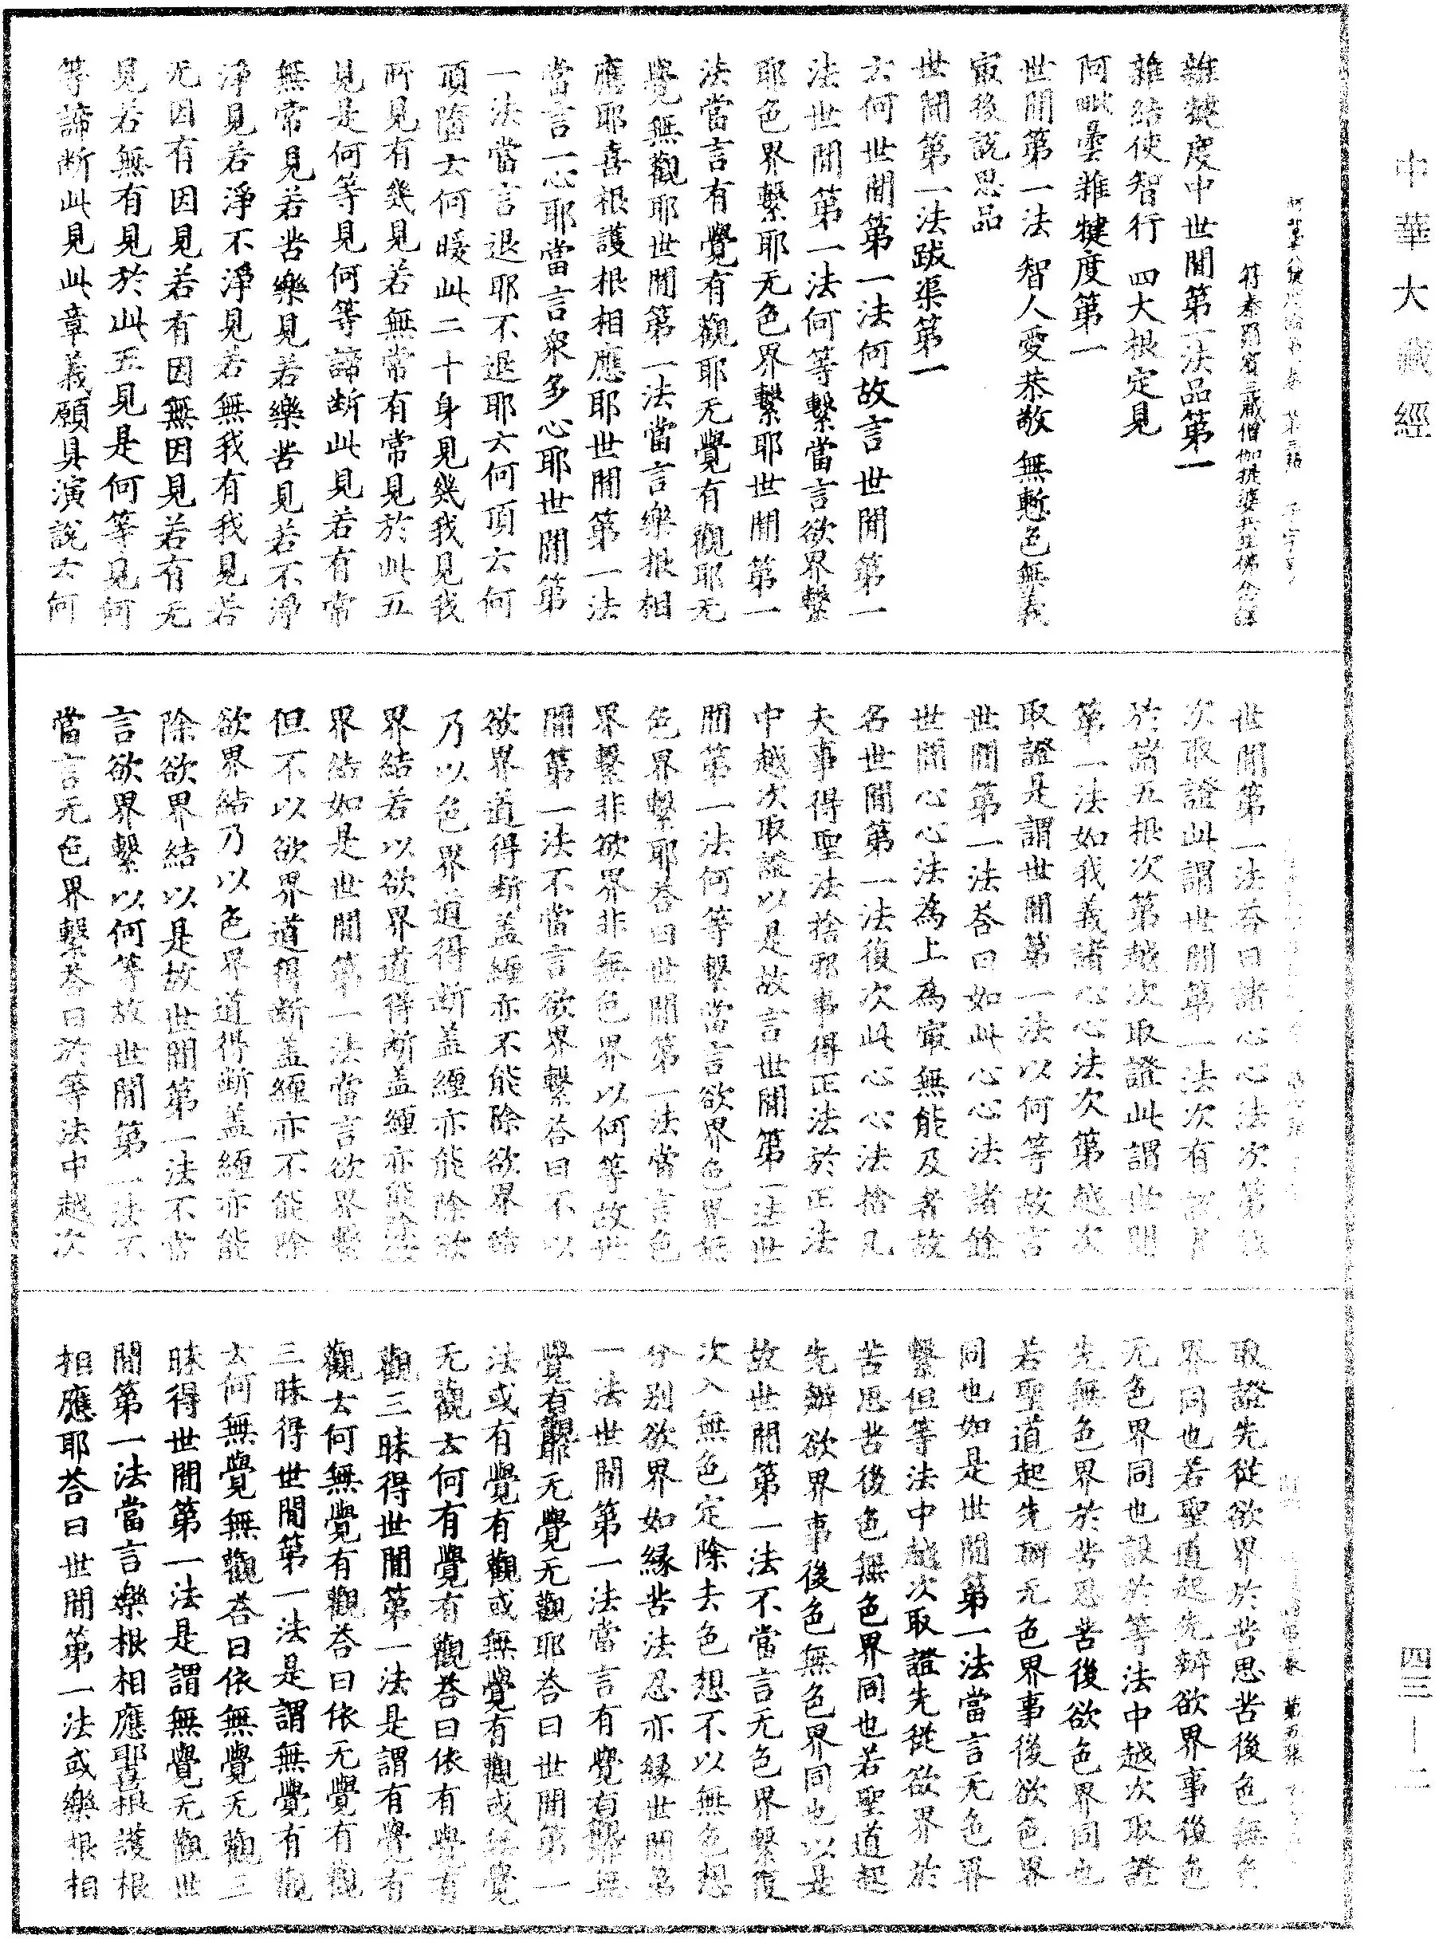 中華大藏經
符秦罽賓三藏僧伽提婆共竺佛念譯
雜犍度中世間第一法品第一
雜結使智行　四大根定見
阿毗曇雜犍度第一
世間第一法　智人愛恭敬　無慙色無義
㝡後説思品
世間第一法跋渠第一
云何世間第一法何故言世間第一
法世間第一法何等繫當言欲界繫
耶色界繫耶无色界繫耶世間第一
法當言有覺有觀耶无覺有觀耶无
覺無觀耶世間第一法當言樂根相
應耶喜根護根相應耶世間第一法
當言一心耶當言衆多心耶世間第
一法當言退耶不退耶云何頂云何
頂墮云何暖此二十身見幾我見我
所見有幾見若無常有常見於此五
見是何等見何等諦断此見若有常
無常見若苦樂見若樂苦見若不淨
淨見若淨不淨見若無我有我見若
无因有因見若有因無因見若有无
見若無有見於此五見是何等見何
等諦断此見此章義願具演説云何
世間第一法荅曰諸心心法次第越
次取證此謂世間第一法次有説者
於諸五根次第越次取證此謂世間
第一法如我義諸心心法次第越次
取證是謂世間第一法以何等故言
世間第一法荅曰如此心心法諸餘
世間心心法為上為㝡無能及者故
名世間第一法復次此心心法捨凡
夫事得聖法捨邪事得正法於正法
中越次取證以是故言世間第一法世
間第一法何等繫當言欲界色界無
色界繫耶荅曰世間第一法當言色
界繫非欲界非無色界以何等故世
間第一法不當言欲界繫荅曰不以
欲界道得断盖纏亦不能除欲界結
乃以色界道得断盖纏亦能除欲
界結若以欲界道得断盖纏亦能除欲
界結如是世間第一法當言欲界繫
但不以欲界道得断盖纏亦不能除
欲界結乃以色界道得断盖纏亦能
除欲界結以是故世間第一法不當
言欲界繫以何等故世間第一法不
當言无色界繫荅曰於等法中越次
取證先從欲界於苦思苦後色無色
界同也若聖道起先辦欲界事後色
无色界同也設於等法中越次取證
先無色界於苦思苦後欲色界同也
若聖道起先辦无色界事後欲色界
同也如是世間第一法當言无色界
繫但等法中越次取證先從欲界於
苦思苦後色無色界同也若聖道起
先辦欲界事後色無色界同也以是
故世間第一法不當言无色界繫復
次入無色定除去色想不以無色想
分別欲界如緣苦法忍亦緣世間第
一法世間第一法當言有覺有觀無
覺有觀耶无覺无觀耶荅曰世間第一
法或有覺有觀或無覺有觀或無覺
无觀云何有覺有觀荅曰依有覺有
觀三昧得世間第一法是謂有覺有
觀云何無覺有觀荅曰依无覺有觀
三昧得世間第一法是謂無覺有觀
云何無覺無觀荅曰依無覺无觀三
昧得世間第一法是謂無覺无觀世
間第一法當言樂根相應耶喜根護根
相應耶荅曰世間第一法或樂根相
四三—二